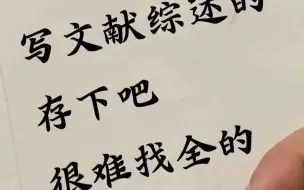 写文献综述的
存下吧
很难找全的